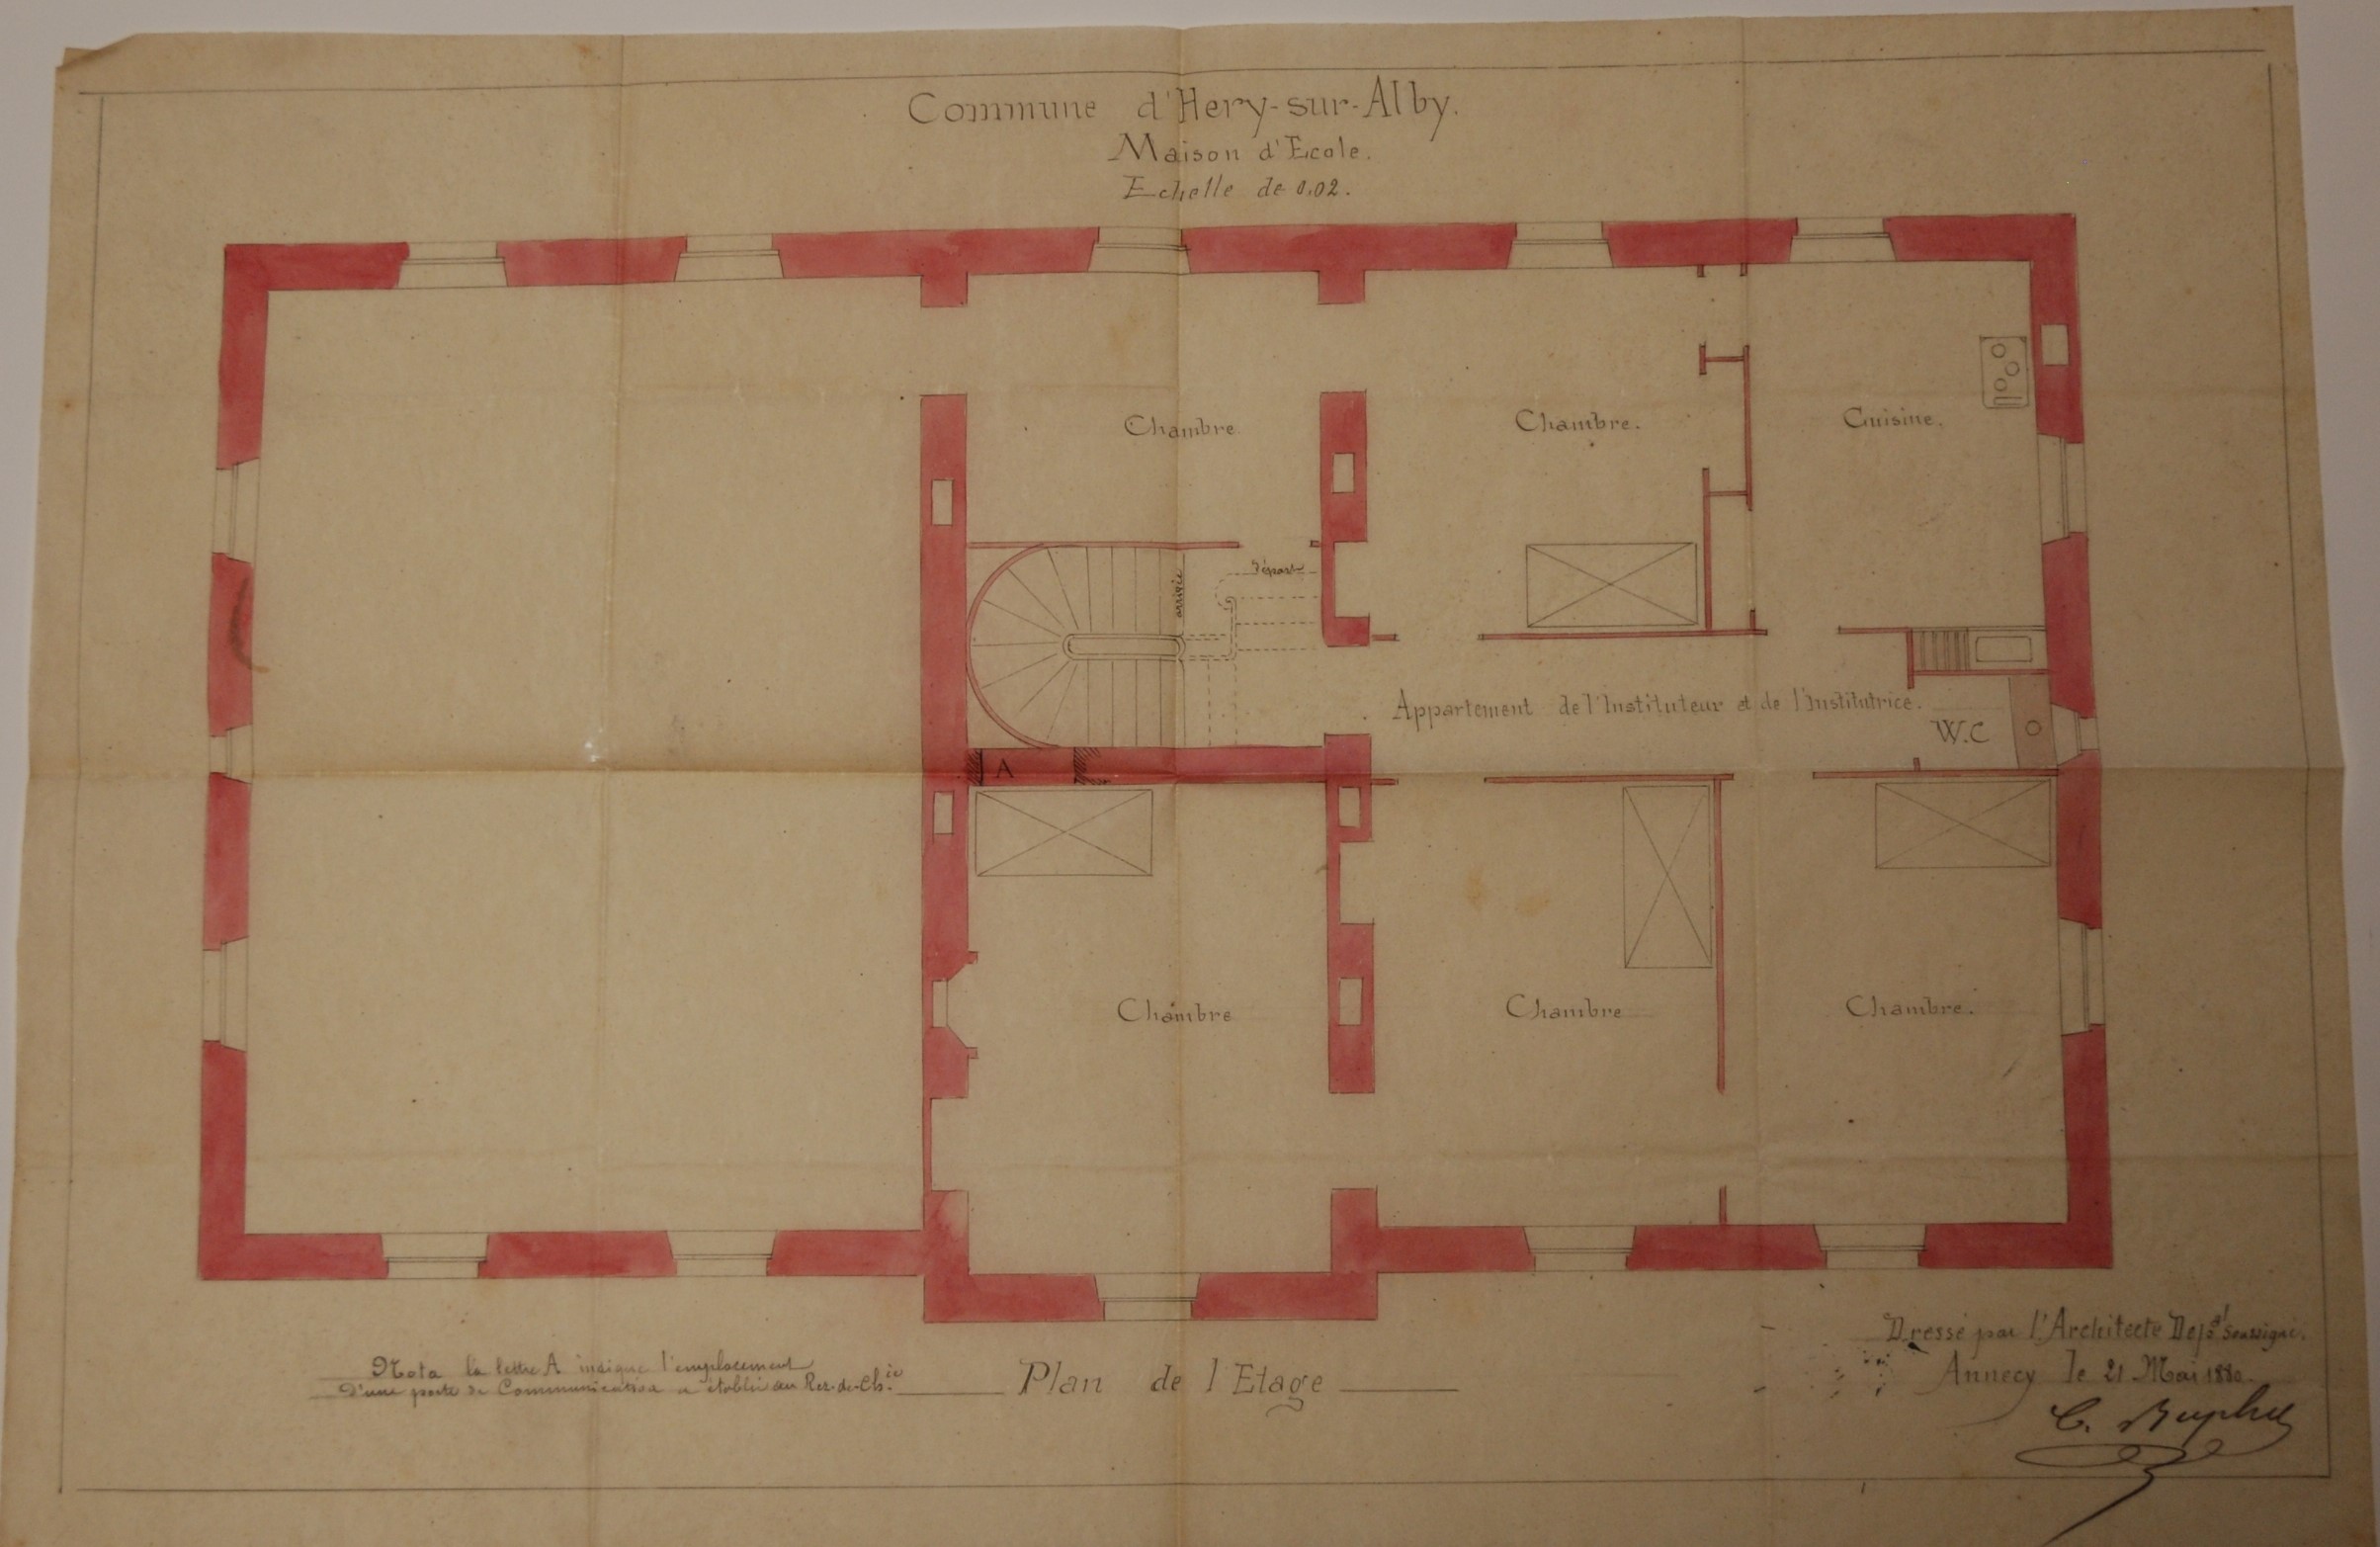 Commune d'Hery-sur-Alby.
Maison d'Ecole.
Echelle de 0,02.
Chambre
Chambre.
Cuisine.
Départ
arrivée
Appartement de l'Instituteur et de l'Institutrice.
W.C
A
Chambre
Chambre
Chambre.
Nota la lettre A insigne l'emplacement
D'une porte de Communication a établir au Rez-de-Ch.
Plan de l'Etage
Dressé par l'Architecte Dept Soussigné.
Annecy le 21 Mai 1880.
C.